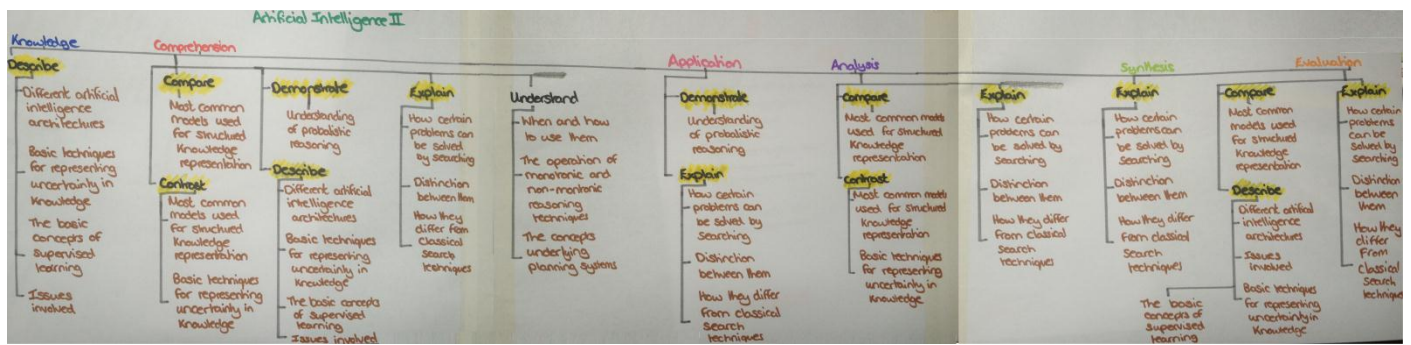 Artificial Intelligence II
Knowledge
Describe
Different artificial
intelligence
architectures
Basic techniques
for representing
uncertainty in
Knowledge
The basic
concepts of
supervised
learning
Issues
involved
Comprehension
Compare
Most common
models used
for structured
Knowledge
representation
Contrast
Most common
models used
for structured
Knowledge
representation
Basic techniques
for representing
uncertainty in
Knowledge
Demonstrate
Understanding
of probalistic
reasoning
Describe
Different artificial
intelligence
architectures
Basic techniques
for representing
uncertainty in
Knowledge
The basic concepts
of supervised
learning
Issues involved
Explain
How certain
problems can
be solved
by searching
Distinction
between them
How they
differ from
classical
search
techniques
Understand
When and how
to use them
The operation of
monotonic and
non-montonic
reasoning
techniques
The concepts
underlying
planning systems
Application
Demonstrate
Understanding
of probalistic
reasoning
Explain
How certain
problems can
be solved by
searching
Distinction
between them
How they differ
from classical
search
techniques
Analysis
Compare
Most common models
used for structured
Knowledge
representation
Contrast
Most common models
used for structured
Knowledge
representation
Basic techniques
for representing
uncertainty in
Knowledge
Explain
How certain
problems can
be solved by
searching
Distinction
between them
How they differ
from classical
search
techniques
Synthesis
Explain
How certain
problems can
be solved by
searching
Distinction
between them
How they differ
from classical
search
techniques
Evaluation
Compare
Most common
models used
for structured
Knowledge
representation
Describe
Different artifical
intelligence
architectures
Issues
involved
Basic techniques
for representing
uncertainty in
Knowledge
The basic
concepts of
supervised
learning
Explain
How certain
problems
can be
solved by
searching
Distinction
between
them
How they
differ
from
classical
search
techniques